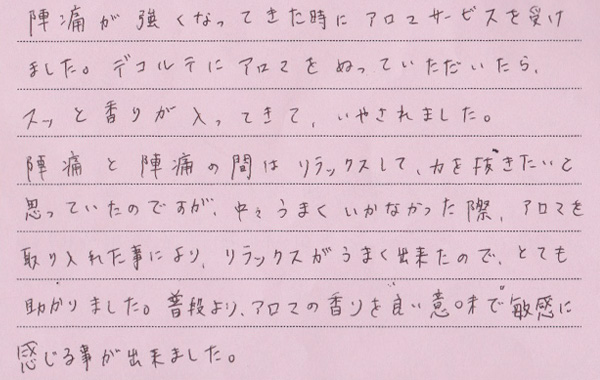 陣痛が強くなってきた時にアロマサービスを受け
ました。デコルテにアロマをぬっていただいたら、
スッと香りが入ってきて、いやされました。
陣痛と陣痛の間はリラックスして、力を抜きたいと
思っていたのですが、中々うまくいかなかった際、アロマを
取り入れた事により、リラックスがうまく出来たので、とても
助かりました。普段より、アロマの香りを良い意味で敏感に
感じる事が出来ました。